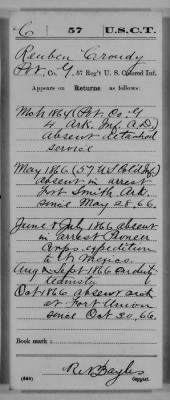 C 57 U.S.C.T.
Reuben Croudy
Pvt, Co. G, 57 Reg't U. S. Colored Inf.
Appears on Returns as follows:
Mch 1864 (Pvt. Co. G
4 Ark. Inf. A.D.)
Absent detached
service
May 1866 (57 U.S. Col'd Inf.)
absent in arrest
Fort Smith Ark.
since May 28.66.
June & July 1866 absent
in arrest Pioneer
Corps. expedition
to N. Mexico.
Aug & Sept 1866 on duty
Teamster
Oct 1866 absent sick
at Fort Union
since Oct 20.66.
Book mark:
(546)
R. N. Bayles
Copyist.